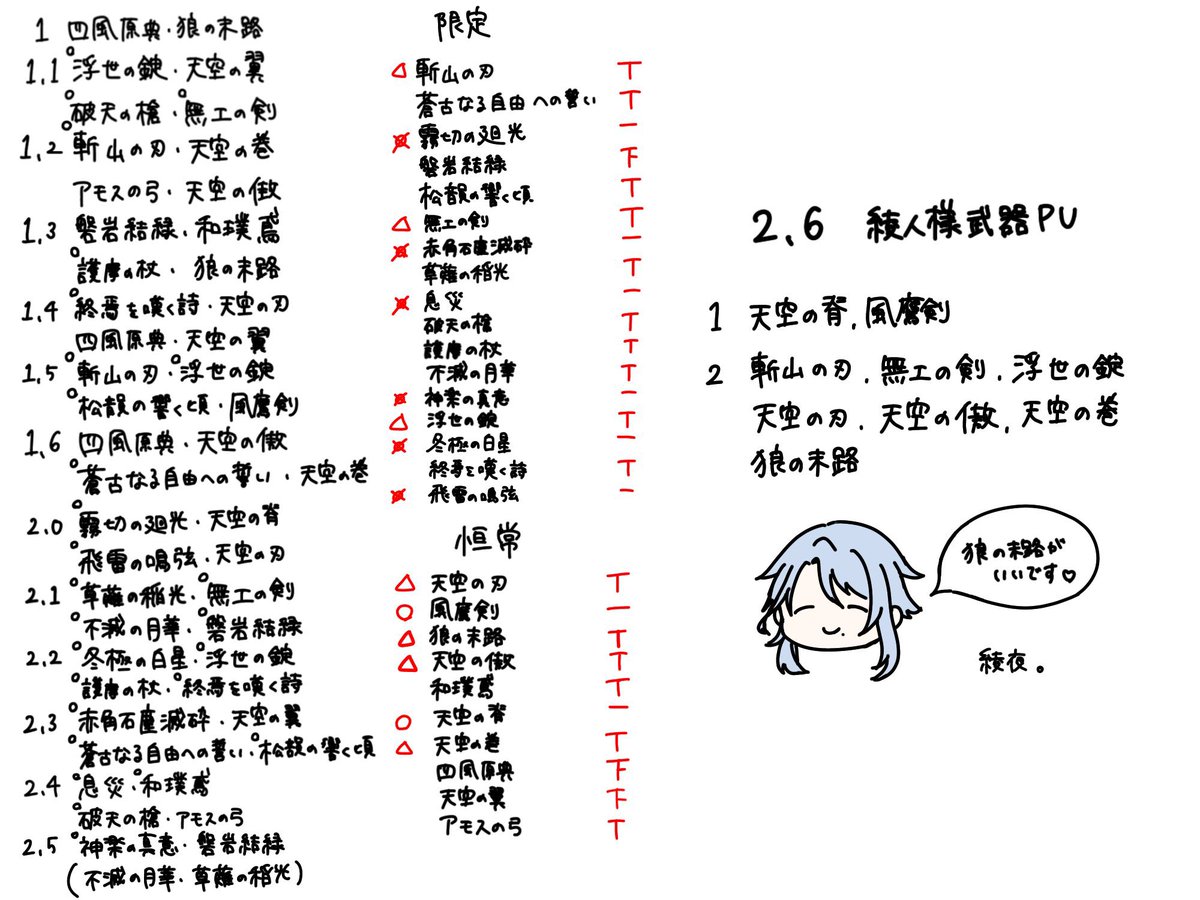 1 四風原典・狼の末路
1.1 浮世の錠・天空の翼
破天の槍・無工の剣
1.2 斬山の刃・天空の巻
アモスの弓・天空の傲
1.3 磐岩結緑・和璞鳶
護摩の杖・狼の末路
1.4 終焉を嘆く詩・天空の刃
四風原典・天空の翼
1.5 斬山の刃・浮世の錠
松韻の響く頃・風鷹剣
1.6 四風原典・天空の傲
蒼古なる自由への誓い・天空の巻
2.0 霧切の廻光・天空の脊
飛雷の鳴弦・天空の刃
2.1 草薙の稲光・無工の剣
不滅の月華・磐岩結緑
2.2 冬極の白星・浮世の錠
護摩の杖・終焉を嘆く詩
2.3 赤角石塵滅砕・天空の翼
蒼古なる自由への誓い・松韻の響く頃
2.4 息災・和璞鳶
破天の槍・アモスの弓
2.5 神楽の真意・磐岩結緑
(不滅の月華・草薙の稲光)
限定
△ 斬山の刃 T
蒼古なる自由への誓い T
霧切の廻光 一
磐岩結緑 下
松韻の響く頃 T
△ 無工の剣 T
赤角石塵滅砕 一
草薙の稲光 T
息災 一
破天の槍 T
護摩の杖 T
不滅の月華 T
神楽の真意 一
△ 浮世の錠 T
冬極の白星 一
終焉を嘆く詩 T
飛雷の鳴弦 一
恒常
△ 天空の刃 T
○ 風鷹剣 一
△ 狼の末路 T
△ 天空の傲 T
和璞鳶 T
○ 天空の脊 一
△ 天空の巻 T
四風原典 下
天空の翼 下
アモスの弓 T
2.6 綾人様武器PU
1 天空の脊.風鷹剣
2 斬山の刃.無工の剣.浮世の錠
天空の刃.天空の傲.天空の巻
狼の末路
狼の末路が
いいです♡
綾夜。